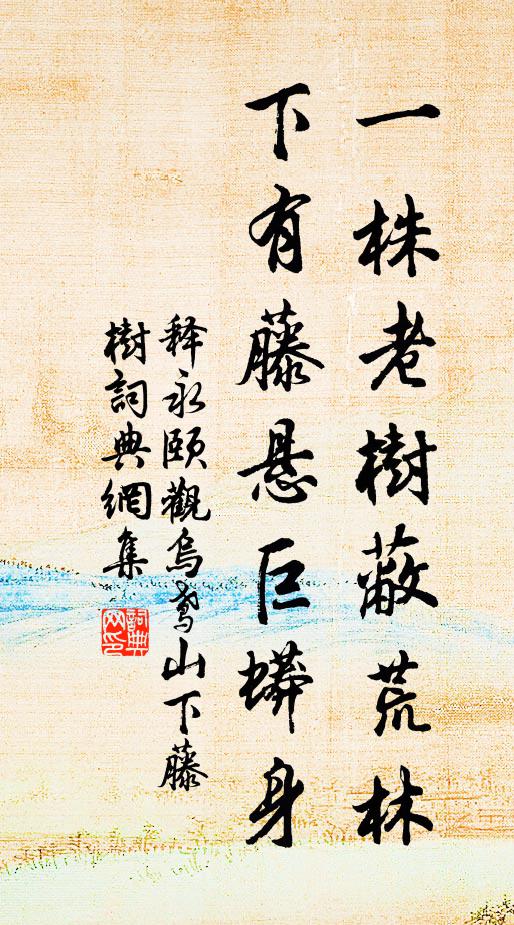 一株老樹蔽荒林
下有藤悬巨蟒身
释永颐觀烏鸢山下藤
樹詞典網集
詞典网印